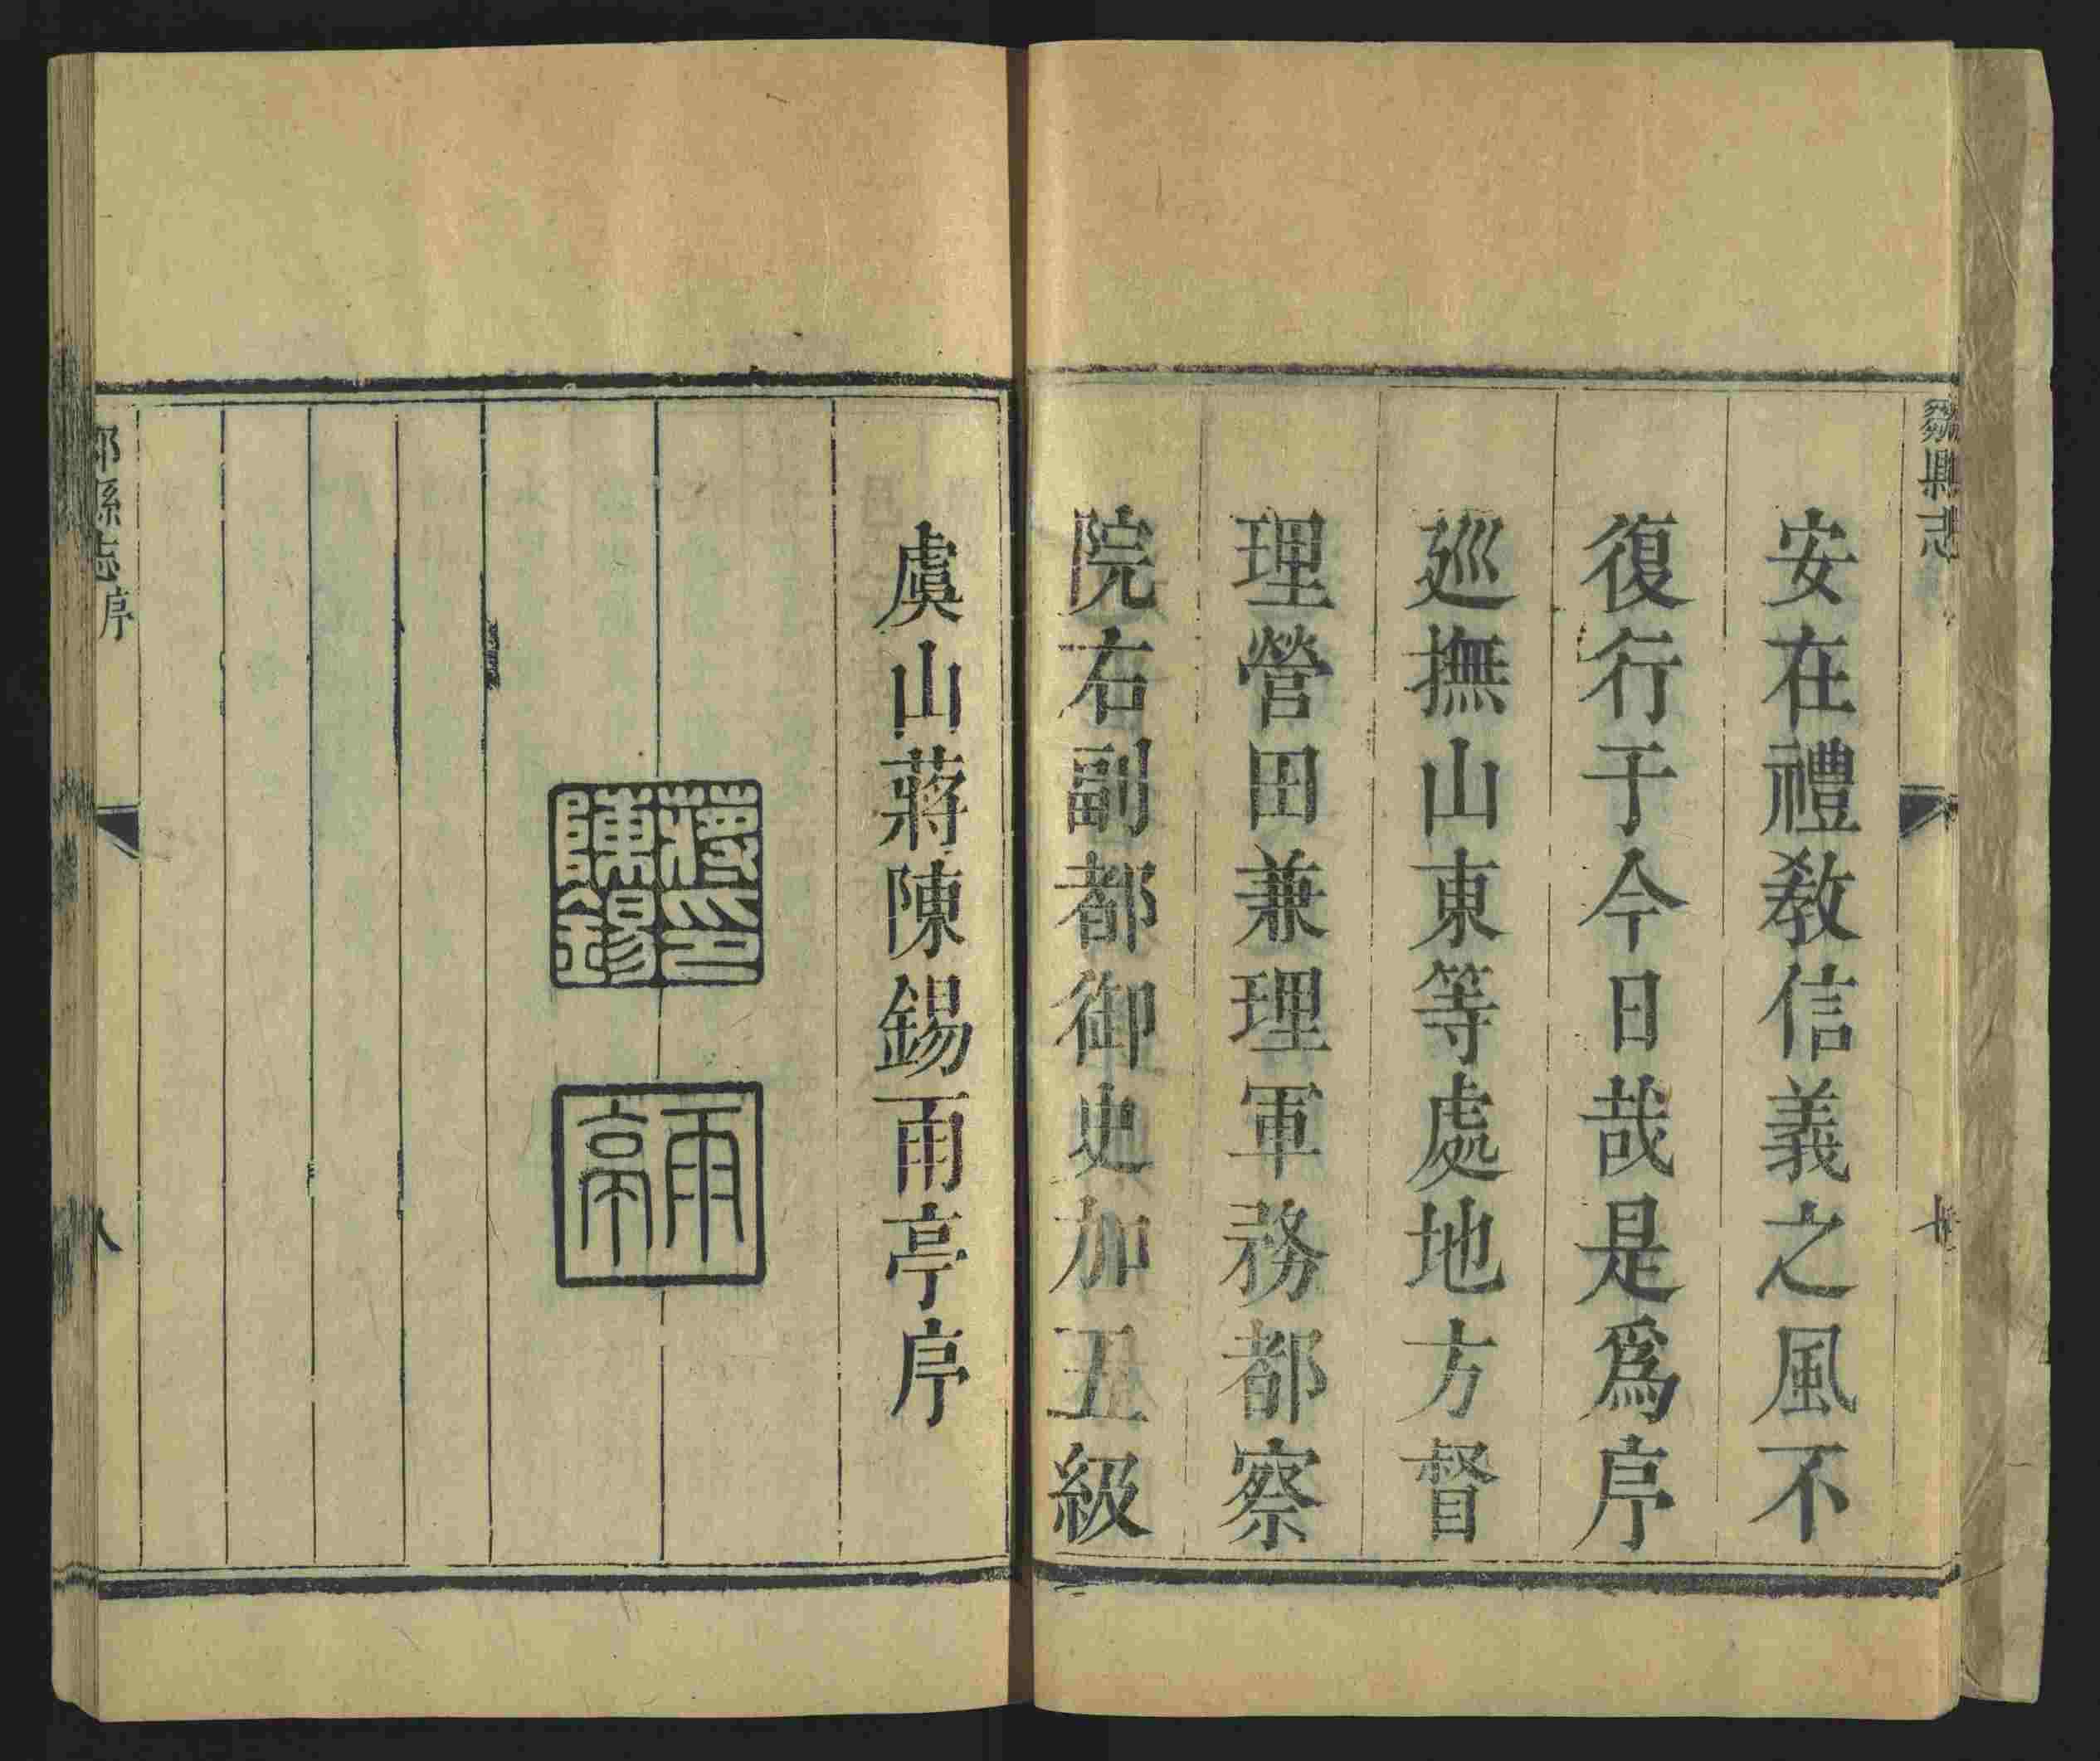 鄒縣志
七
安在禮教信義之風不
復行于今日哉是爲序
巡撫山東等處地方督
理營田兼理軍務都察
院右副都御史加五級
虞山蔣陳錫雨亭序
蔣印陳錫
雨亭
鄒縣志序
八